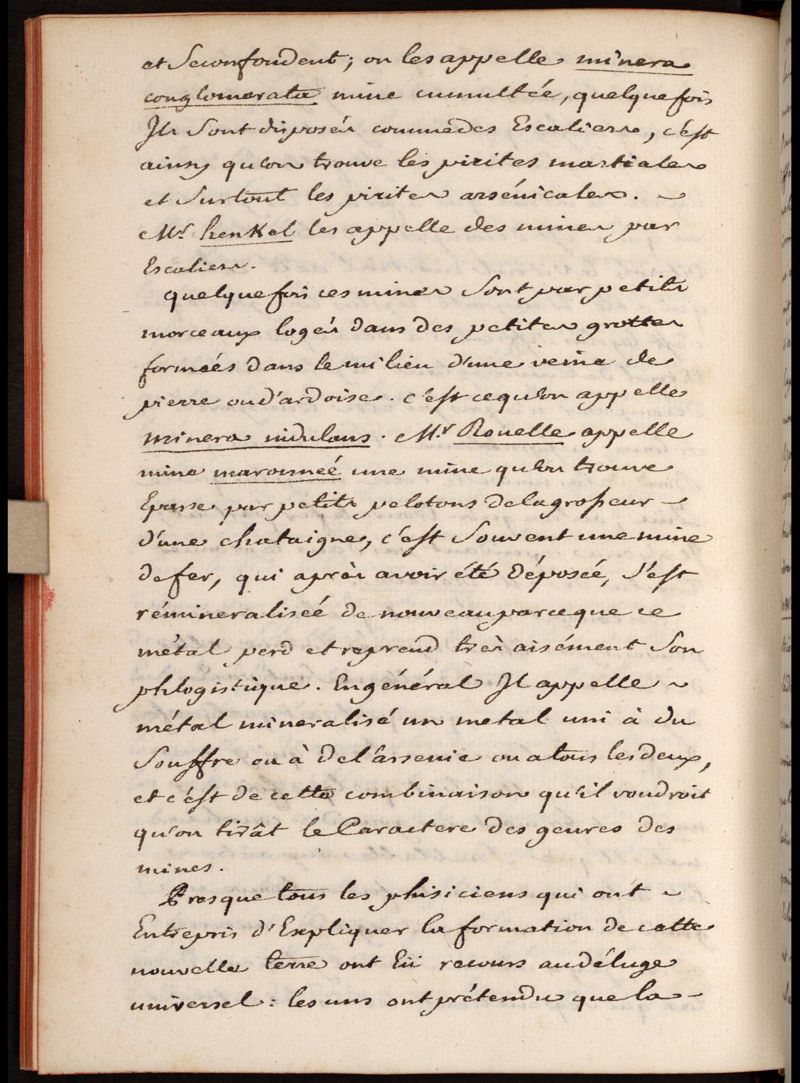 et se confondent; on les appelle minera
conglomerata mine cumultée, quelque fois
Ils sont disposés comme des Escaliers, c'est
ainsy qu'on trouve les pirites martiales
et surtout les pirites arsénicales.
Mr. henkel les appelle des mines par
Escaliers.
quelque fois ces mines sont par petits
morceaux logés dans des petites grottes
formées dans le milieu d'une veine de
pierre ou d'ardoise. c'est ce qu'on appelle
minera nidulans. Mr. Rouelle appelle
mine maronneé une mine qu'on trouve
Eparse par petits pelotons de la grosseur
d'une chataigne, c'est souvent une mine
de fer, qui après avoir été déposée, s'est
rémineraliseé de nouveau parce que ce
métal perd et reprend très aisément son
phlogistique. En général Il appelle
métal mineralisé un metal uni à du
souffre ou à de l'arsenic ou a tous les deux,
et c'est de cette combinaison qu'il voudroit
qu'on tirât le Caractere des genres des
mines.
Presque tous les phisiciens qui ont
Entrepris d'Expliquer la formation de cette
nouvelle terre ont Eü recours au déluge
universel: les uns ont prétendu que la